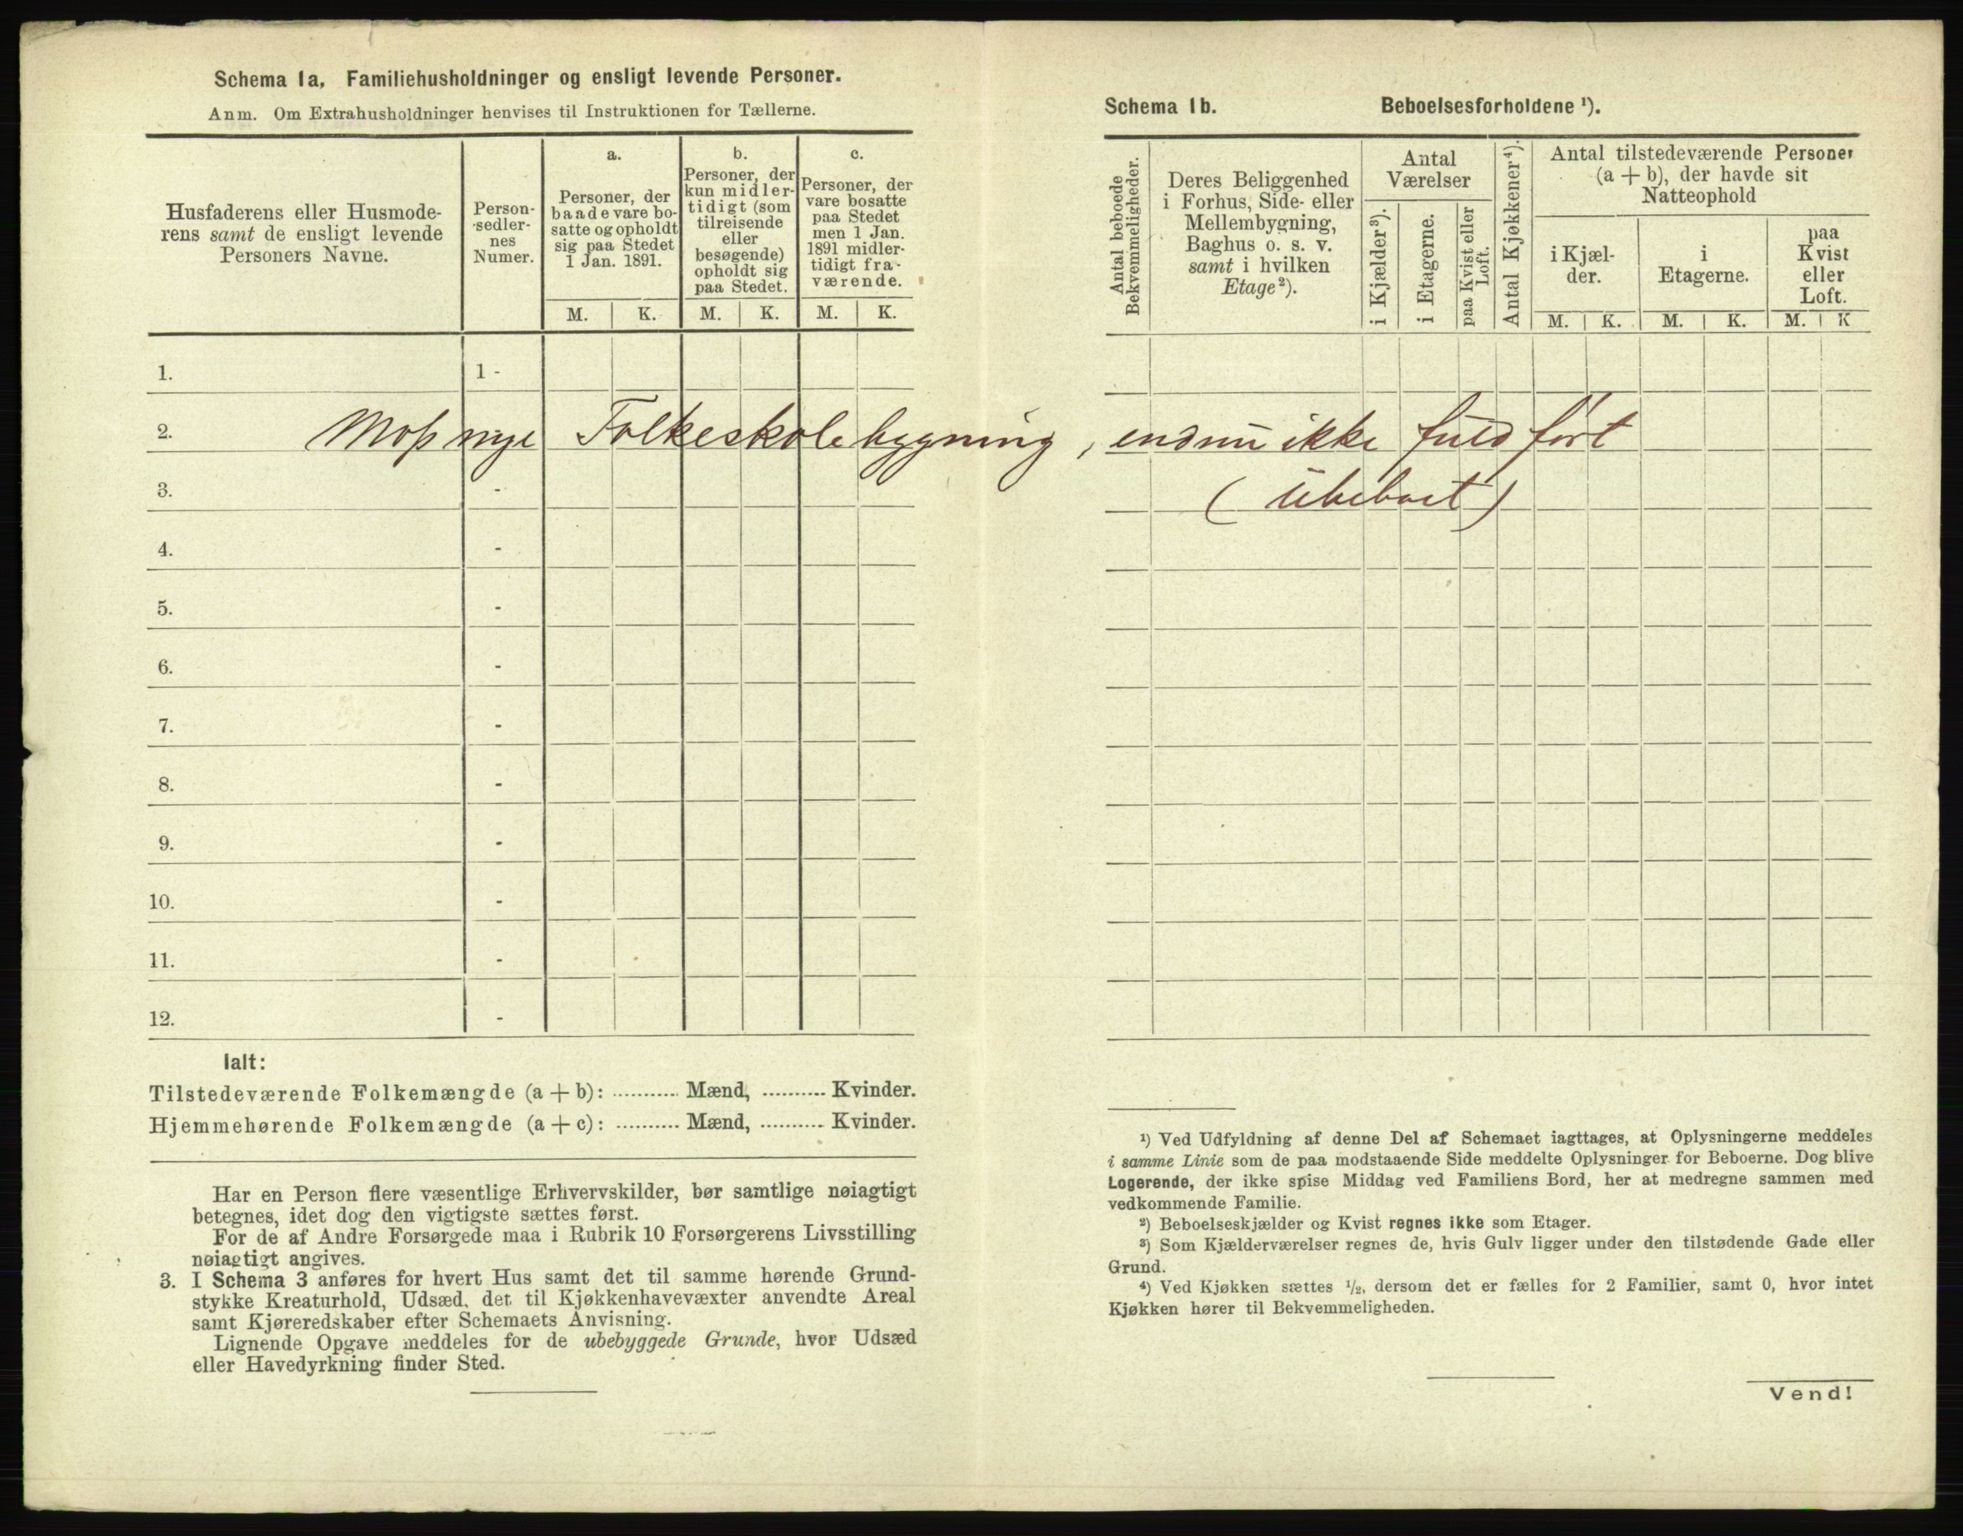 Schema 1a. Familiehusholdninger og ensligt levende Personer.
Anm. Om Extrahusholdninger henvises til Instruktionen for Tællerne.
Husfaderens eller Husmode-
rens samt de ensligt levende
Personers Navne.
Person-
sedler-
nes
Numer.
a.
Personer, der
baade vare bo-
satte og opholdt
sig paa Stedet
1 Jan. 1891.
b.
Personer, der
kun midler-
tidigt (som
tilreisende
eller
besøgende)
opholdt sig
paa Stedet.
c.
Personer, der
vare bosatte
paa Stedet
men 1 Jan.
1891 midler-
tidigt fra-
værende.
M. K. M. K. M. K.
1. 1 -
2. Moss nye Folkeskolebygning, endnu ikke fuldført
3. -
(Ubeboet)
4. -
5. -
6. -
7. -
8. -
9. -
10. -
11. -
12. -
Ialt:
Tilstedeværende Folkemængde (a + b): .......... Mænd, .......... Kvinder.
Hjemmehørende Folkemængde (a + c): .......... Mænd, .......... Kvinder.
Har en Person flere væsentlige Erhvervskilder, bør samtlige nøiagtigt
betegnes, idet dog den vigtigste sættes først.
For de af Andre Forsørgede maa i Rubrik 10 Forsørgerens Livsstilling
nøiagtigt angives.
3. I Schema 3 anføres for hvert Hus samt det til samme hørende Grund-
stykke Kreaturhold, Udsæd, det til Kjøkkenhavevæxter anvendte Areal
samt Kjøreredskaber efter Schemaets Anvisning.
Lignende Opgave meddeles for de ubebyggede Grunde, hvor Udsæd
eller Havedyrkning finder Sted.
Schema 1b. Beboelsesforholdene ¹).
Antal beboede
Bekvemmeligheder.
Deres Beliggenhed
i Forhus, Side- eller
Mellembygning,
Baghus o. s. v.
samt i hvilken
Etage²).
Antal
Værelser
i Kjælder³).
i Etagerne.
paa Kvist eller
Loft.
Antal Kjøkkener⁴).
Antal tilstedeværende Personer
(a + b), der havde sit
Natteophold
i Kjæl-
der.
i
Etagerne.
paa
Kvist
eller
Loft.
M. K. M. K. M. K
¹) Ved Udfyldning af denne Del af Schemaet iagttages, at Oplysningerne meddeles
i samme Linie som de paa modstaaende Side meddelte Oplysninger for Beboerne. Dog blive
Logerende, der ikke spise Middag ved Familiens Bord, her at medregne sammen med
vedkommende Familie.
²) Beboelseskjælder og Kvist regnes ikke som Etager.
³) Som Kjælderværelser regnes de, hvis Gulv ligger under den tilstødende Gade eller
Grund.
⁴) Ved Kjøkken sættes ½, dersom det er fælles for 2 Familier, samt 0, hvor intet
Kjøkken hører til Bekvemmeligheden.
Vend!